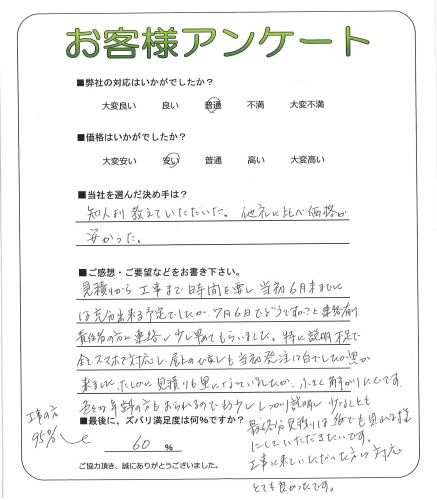 お客様アンケート
■弊社の対応はいかがでしたか？
大変良い　良い　普通　不満　大変不満
■価格はいかがでしたか？
大変安い　安い　普通　高い　大変高い
■当社を選んだ決め手は？
知人より教えていただいた。他社に比べ価格が
安かった。
■ご感想・ご要望などをお書き下さい。
見積りから工事まで日時間を要し、当初6月末までに
は充分出来る予定でしたが、7月6日でどうですかと連絡有り
責任者の方に連絡し少し早めてもらいました。特に説明不足で
全てスマホで対応し、屋上のひなしも当初発注は白でしたが黒が
来ました。たしかに見積りも黒になっていましたが、小さく解かりにくいです
色々な年齢の方もおられるのでもう少ししっかり説明し少なくとも
最終分見積りは紙でも見れる様
にしていただきたいです。
工事に来ていただいた方は対応
とても良かったです。
■最後に、ズバリ満足度は何%ですか？
60　%
工事の方
95%
ご協力頂き、誠にありがとうございました。